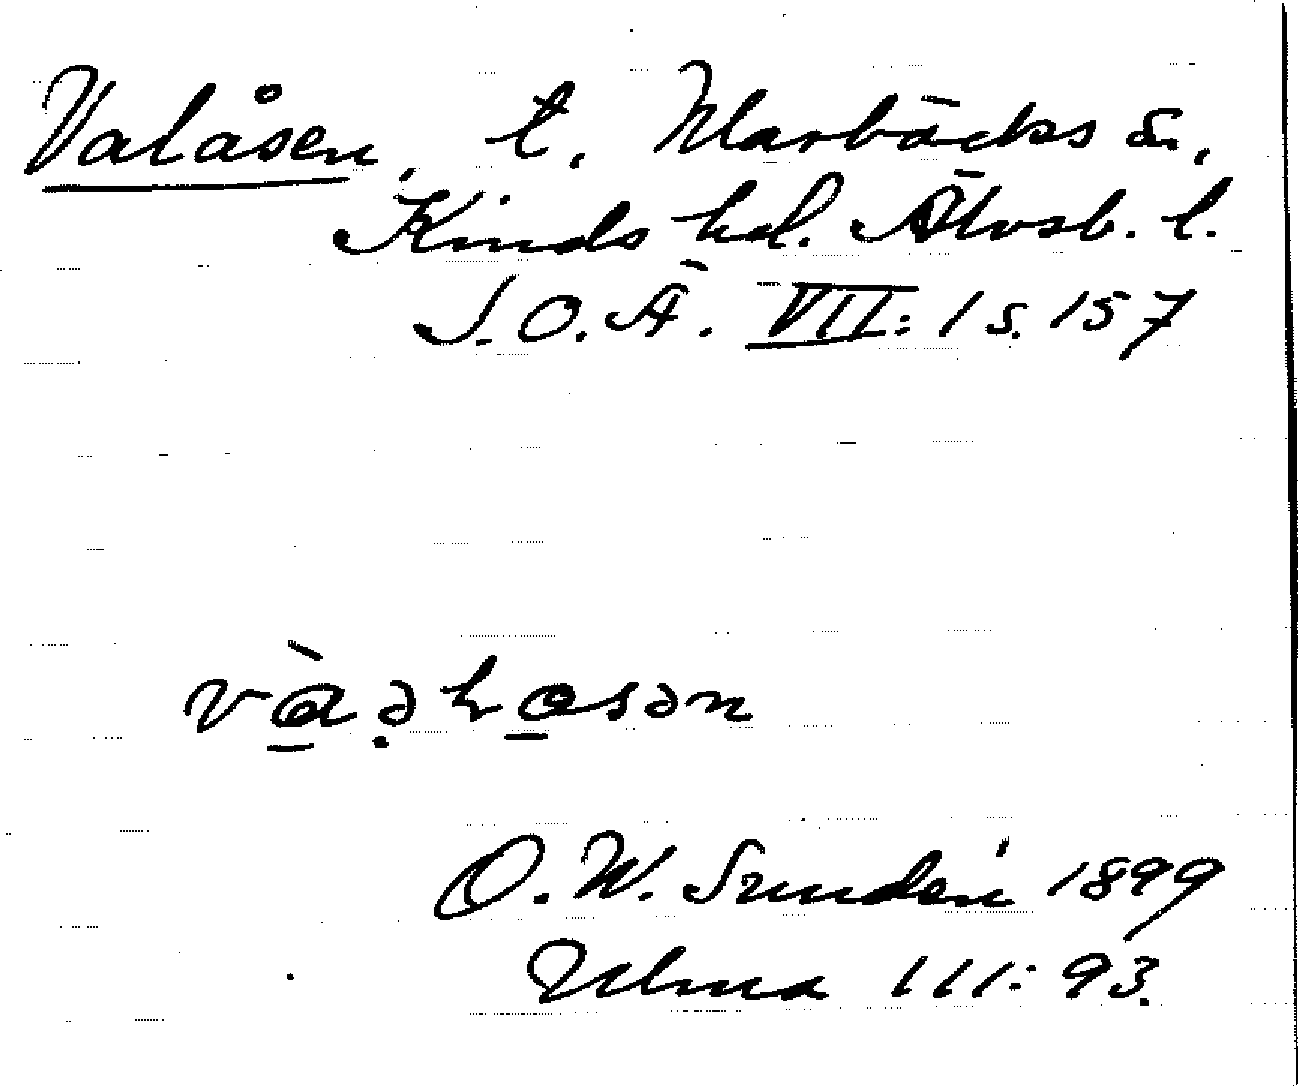 Valåsen, t. Marbäcks sn,
Kinds hd. Älvsb. l.
S.O.Ä. VII: 1 s. 157
vàəhasən
O. W. Sundén 1899
Ulma 111: 93.